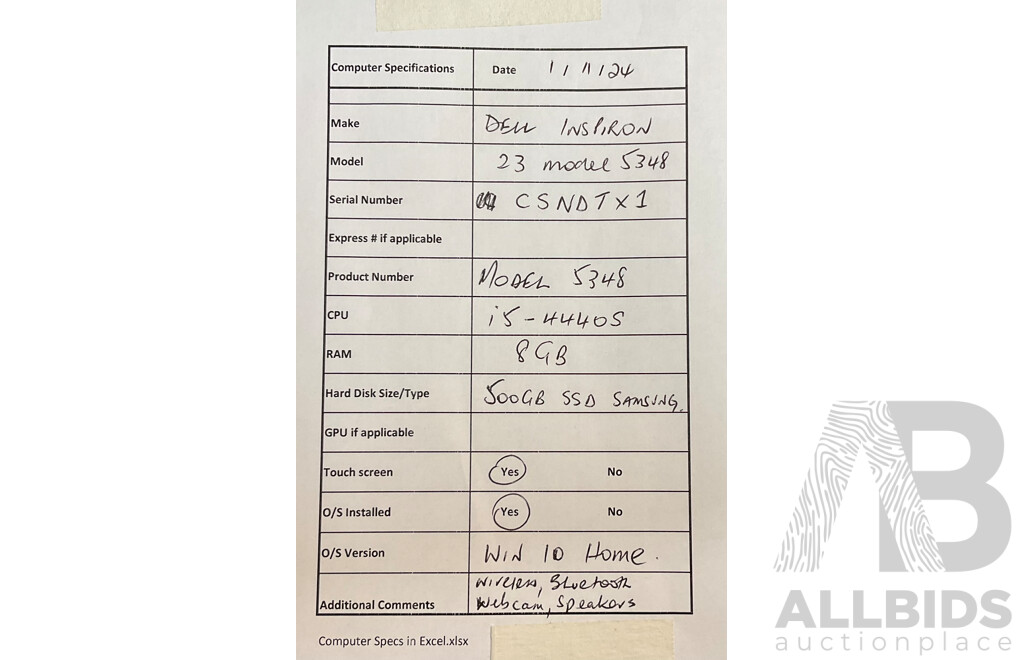 Computer Specifications Date 1/11/24
Make DELL INSPIRON
Model 23 model 5348
Serial Number CSNDTX1
Express # if applicable
Product Number MODEL 5348
CPU i5-4440S
RAM 8GB
Hard Disk Size/Type 500GB SSD SAMSUNG.
GPU if applicable
Touch screen Yes No
O/S Installed Yes No
O/S Version WIN 10 Home.
Wireless, Bluetooth
Additional Comments Webcam, Speakers
Computer Specs in Excel.xlsx
AB
ALLBIDS
auctionplace